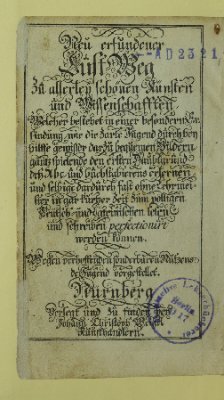 Neu erfundener
Lust Weg
Zu allerley schönen Künsten
und Wissenschafften
AD 2321
Welcher bestehet in einer besondern Er-
findung, wie die zarte Jugend durch bey-
hülffe gewisser darzu bequemen Bildern
gantz spielende den ersten Hauptgrund
deß Abc. und Buchstabierens erlernen
und selbige dardurch fast ohne Lehrmei-
ster in gar kurtzer Zeit zum völligen
Teutsch- und Lateinischen lesen
und schreiben perfectionirt
werden können.
Wegen verhoffenden sonderbaren Nutzens
der Jugend vorgestellet.
Nürnberg
Verlegt und zu finden bey
Johann Christoph Weigel
Kunsthändlern.
Berlin